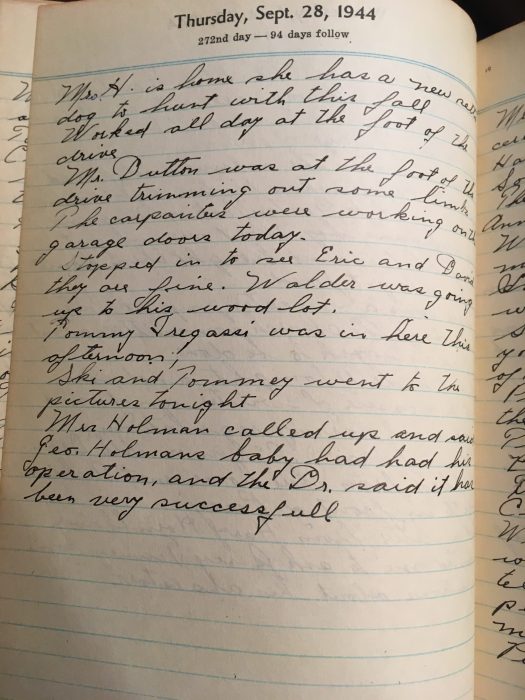 Thursday, Sept. 28, 1944
272nd day — 94 days follow
Mrs. H. is home she has a new
dog to hunt with this fall
Worked all day at the foot of the
drive
Mr. Dutton was at the foot of the
drive trimming out some limbs
The carpainters were working on the
garage doors today.
Stopped in to see Eric and David
they are fine. Walder was going
up to his wood lot.
Tommy Fregassi was in here this
afternoon!
Ski and Tommey went to the
pictures tonight
Mrs Holman called up and said
Geo. Holmans baby had had his
operation, and the Dr. said it had
been very successfull